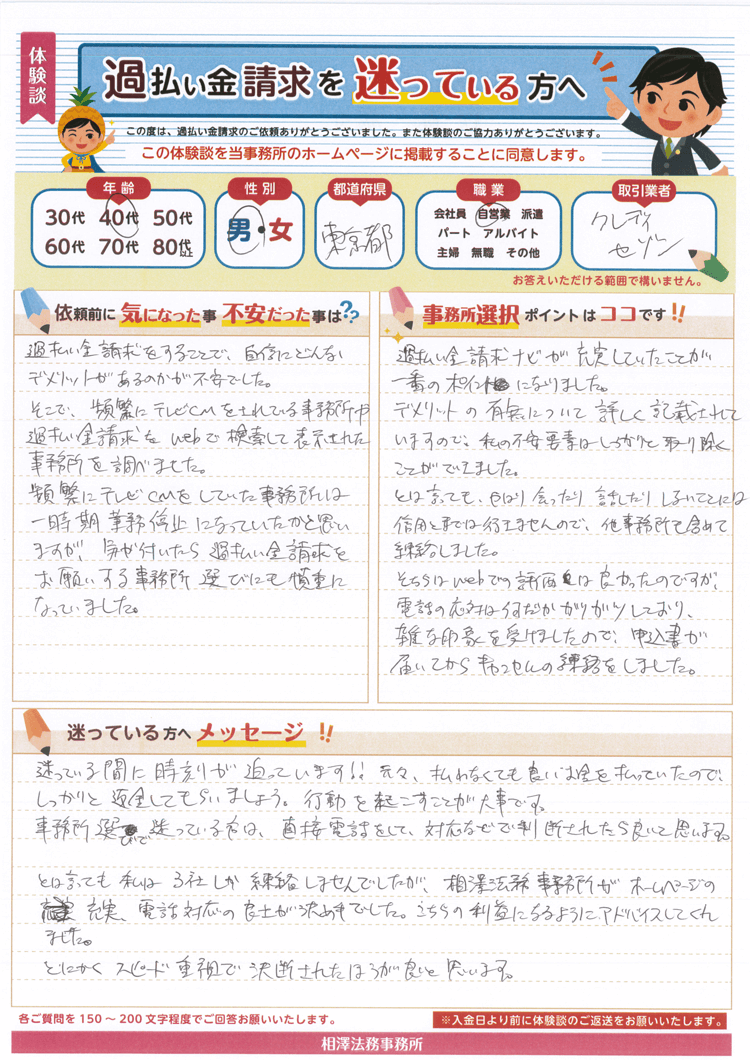 体験談
過払い金請求を迷っている方へ
この度は、過払い金請求のご依頼ありがとうございました。また体験談のご協力ありがとうございます。
この体験談を当事務所のホームページに掲載することに同意します。
年齢
30代 40代 50代
60代 70代 80代以上
性別
男・女
都道府県
東京都
職業
会社員 自営業 派遣
パート アルバイト
主婦 無職 その他
取引業者
クレディ
セゾン
お答えいただける範囲で構いません。
依頼前に気になった事 不安だった事は??
過払い金請求をすることで、自分にどんな
デメリットがあるのかが不安でした。
そこで、頻繁にテレビCMをされている事務所や
過払い金請求をwebで検索して表示された
事務所を調べました。
頻繁にテレビCMをしていた事務所は
一時期業務停止になっていたかと思い
ますが、気が付いたら過払い金請求を
お願いする事務所選びにも慎重に
なっていました。
事務所選択ポイントはココです!!
過払い金請求ナビが充実していたことが
一番のポイントになりました。
デメリットの有無について詳しく記載されて
いますので、私の不安要素はしっかりと取り除く
ことができました。
とは言っても、やはり会ったり話したりしないことには
信用とまでは行きませんので、他事務所も含めて
連絡しました。
そちらはwebでの評価は良かったのですが、
電話の応対は何だかガツガツしており、
雑な印象を受けましたので、申込書が
届いてからキャンセルの連絡をしました。
迷っている方へメッセージ!!
迷っている間に時刻が迫っています!! 元々、払わなくても良いお金を払っていたので、
しっかりと返金してもらいましょう。行動を起こすことが大事です。
事務所選びで迷っている方は、直接電話をして、対応などで判断されたら良いと思います。
とは言っても私は3社しか連絡しませんでしたが、相澤法務事務所がホームページの
充実、電話対応の良さが決め手でした。こちらの利益になるようにアドバイスしてくれ
ました。
とにかくスピード重視で決断されたほうが良いと思います。
各ご質問を150〜200文字程度でご回答お願いいたします。
※入金日より前に体験談のご返送をお願いいたします。
相澤法務事務所